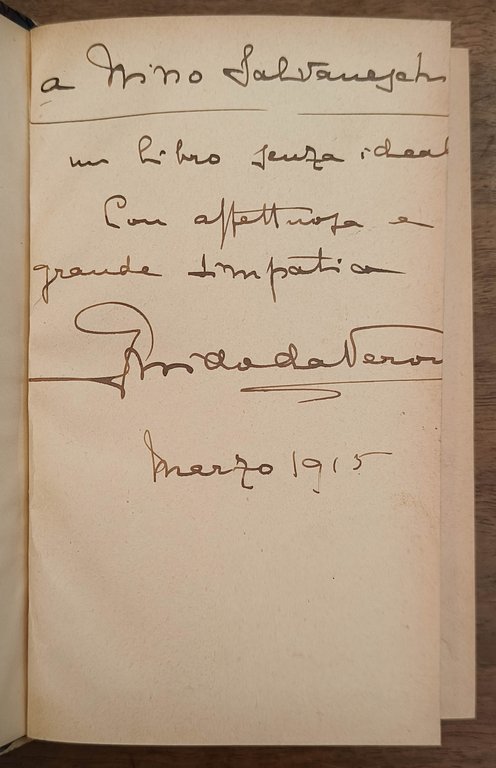 a Nino Salvanesch
un libro senza ideal
Con affettuosa e
grande simpatia
Guido da Veron
Marzo 1915